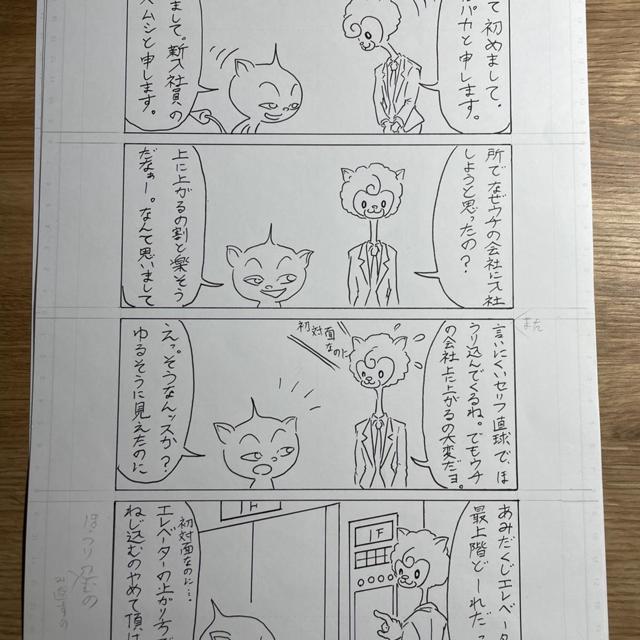 て初めまして。
パカと申します。
まして。新入社員の
ムシと申します。
所でなぜウチの会社に入社
しようと思ったの？
上に上がるの割と楽そう
だなぁー。なんて思いまして
言いにくいセリフ直球で、ほ
うり込んでくるね。でもウチ
の会社上に上がるの大変だヨ。
初対面なのに
えっ。そうなんッスか？
ゆるそうに見えたのに
あみだくじエレベータ
最上階どーれだ。
1F
初対面なのに…
エレベーターの上がり方が
ねじ込むのやめて頂け